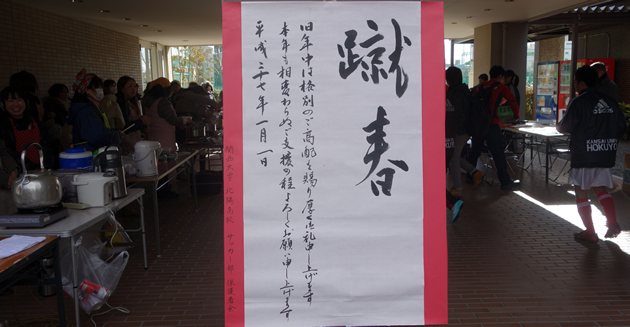 蹴春
旧年中は格別のご高配を賜り厚く御礼申し上げます
本年も相変わらぬご支援の程よろしくお願い申し上げます
平成二十七年一月一日
関西大学 北陽高校 サッカー部 保護者会
adidas
KANSAI UNIV
HOKUYO